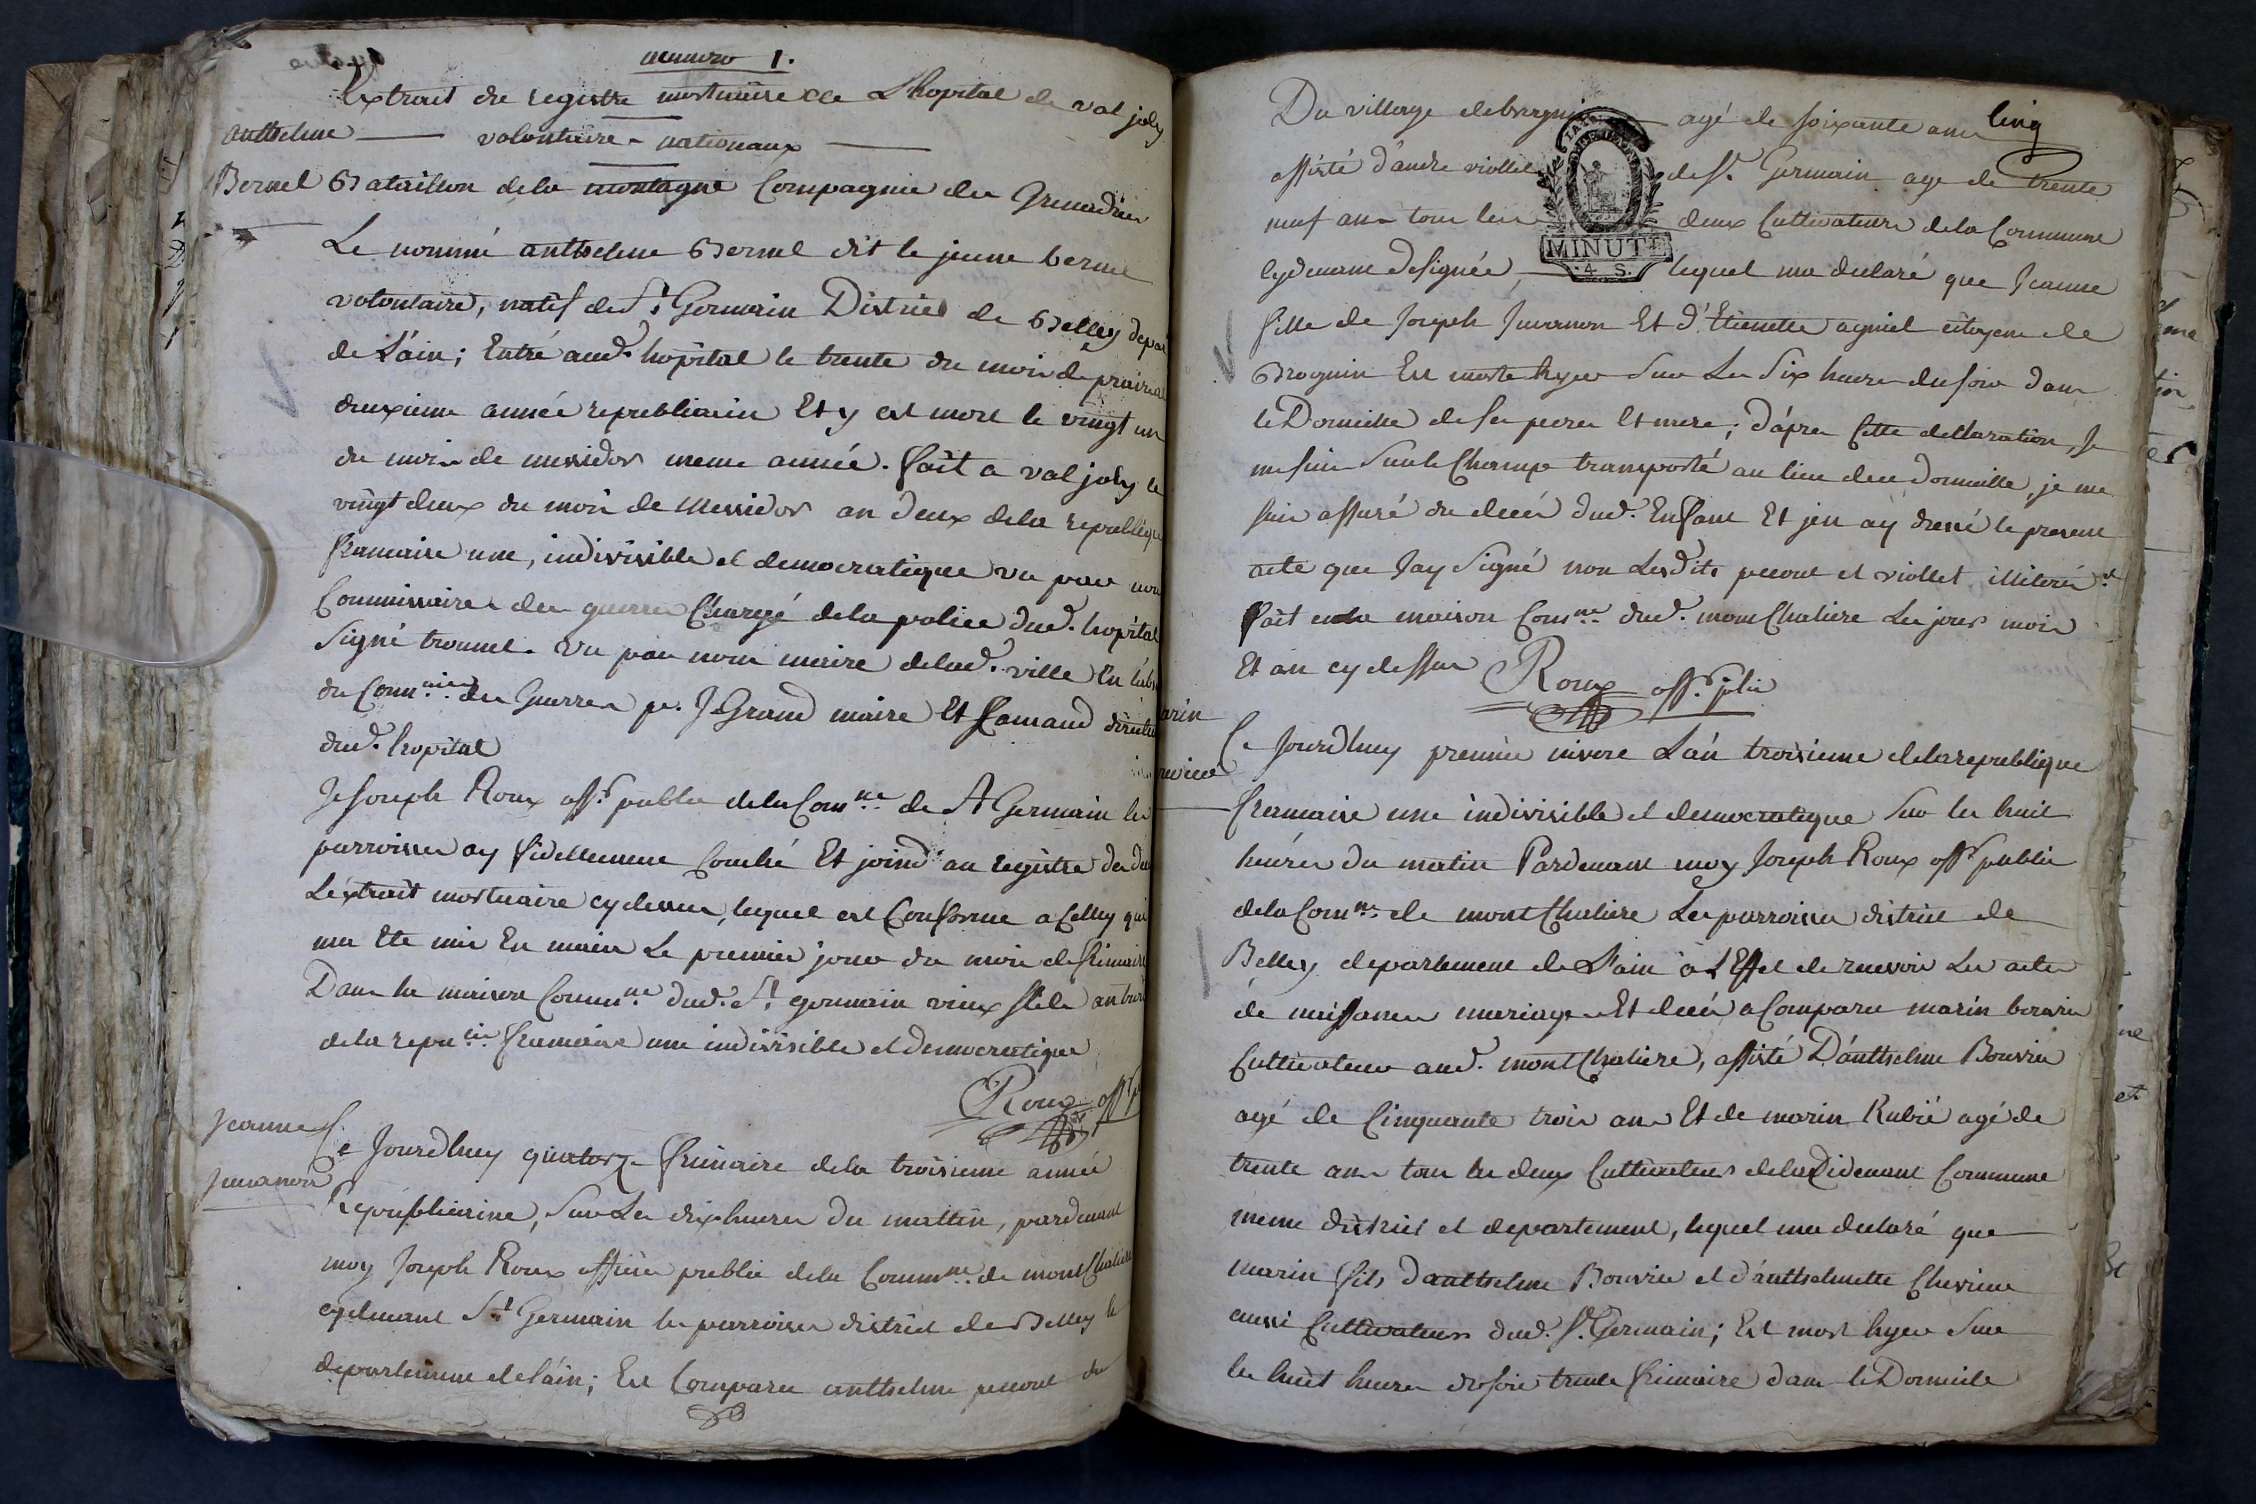 numero 1.
Extrait du registre mortuaire de L'hopital de val joly
anthelme — volontaire nationaux —
Bernel Bataillon dela montagne Compagnie des Grenadier
Le nommé anthelme Bernel dit le jeune bernel
volontaire, natif de St Germain District de Belley depar
de L'ain; Entré aud. hopital le trente du mois de prairial
deuxieme année republicaine Et y est mort le vingt un
du mois de messidor meme année. fait a val joly le
vingt deux du mois de Messidor an deux dela republique
francaise une, indivisible et democratique vu par nous
Commissaire des guerres Chargé dela police dud. hopital
Signé trounel. Vu par nous maire delad. ville En l'abs
du Comm.re des Guerres pr. J. Grand maire Et Lamaud directeur
dud. hopital
Je Joseph Roux offr public dela Com.ne de St Germain les
parroisses ay fidellement Couché Et joind au registre des de
L'extrait mortuaire cydessus, lequel est Conforme a Celluy qui
ma Ete mis En main Le premier jour du mois de frimaire
Dans la maison Commu.ne dud. St germain vieux stile an trois
dela repu.in francaise une indivisible et democratique
Roux offr p
Jeanne
Juvanon
Ce Jourdhuy quatorze frimaire dela troisieme année
Republicaine, Sur Les dix heures du mattin, pardevant
moy Joseph Roux officier public dela Comm.ne de mont Chaliere
cydevant St Germain les parroisses district de Belley le
departement del'ain; Est Comparu anthelme perout du
Du village de brognin agé de soixante ans
Cinq
assisté d'andre viollet de St. Germain age de trente
neuf ans tous les deux Cultivateurs dela Commune
cydevant designée, lequel ma declaré que Jeanne
MINUTE
4 S.
fille de Joseph Juvanon Et d'Etiennette agniel citoyens de
Brognin Est morte hyer Sur Les Six heures du soir dans
le Domicille de ses peres Et mere; d'apres Cette dellaration, Je
me suis Surle Champ transporté au lieu deu Domicille, je me
suis assuré du décés dud. Enfant Et jen ay dressé le present
acte que Jay Signé non Lesdits perout et viollet illiterés
fait enla maison Com.ne dud. mont Chaliere Les jour mois
Et an cy dessus Roux offr. plic
arin
Ce Jourdhuy premier nivose L'an troisieme dela republique
francaise une indivisible et democratique Sur les huit
heures du matin Pardevant moy Joseph Roux offr public
dela Com.ne de mont Chaliere Les parroisses district de
Belley departement de L'ain à L'Effet de recevoir Les actes
de naissances mariages Et décés a Comparu marin bouvier
Cultivateur aud. mont Chaliere, assisté D'anthelme Bouvier
agé de Cinquante trois ans Et de marin Rubié agé de
trente ans tous les deux Cultivateurs dela Cidevant Commune
meme district et departement, lequel ma declaré que
marin fils d'anthelme Bouvier et d'anthelmette Chevrine
aussi Cultivateurs dud. St. Germain; Est mort hyer Sur
les huit heures du soir trente frimaire dans le Domicile